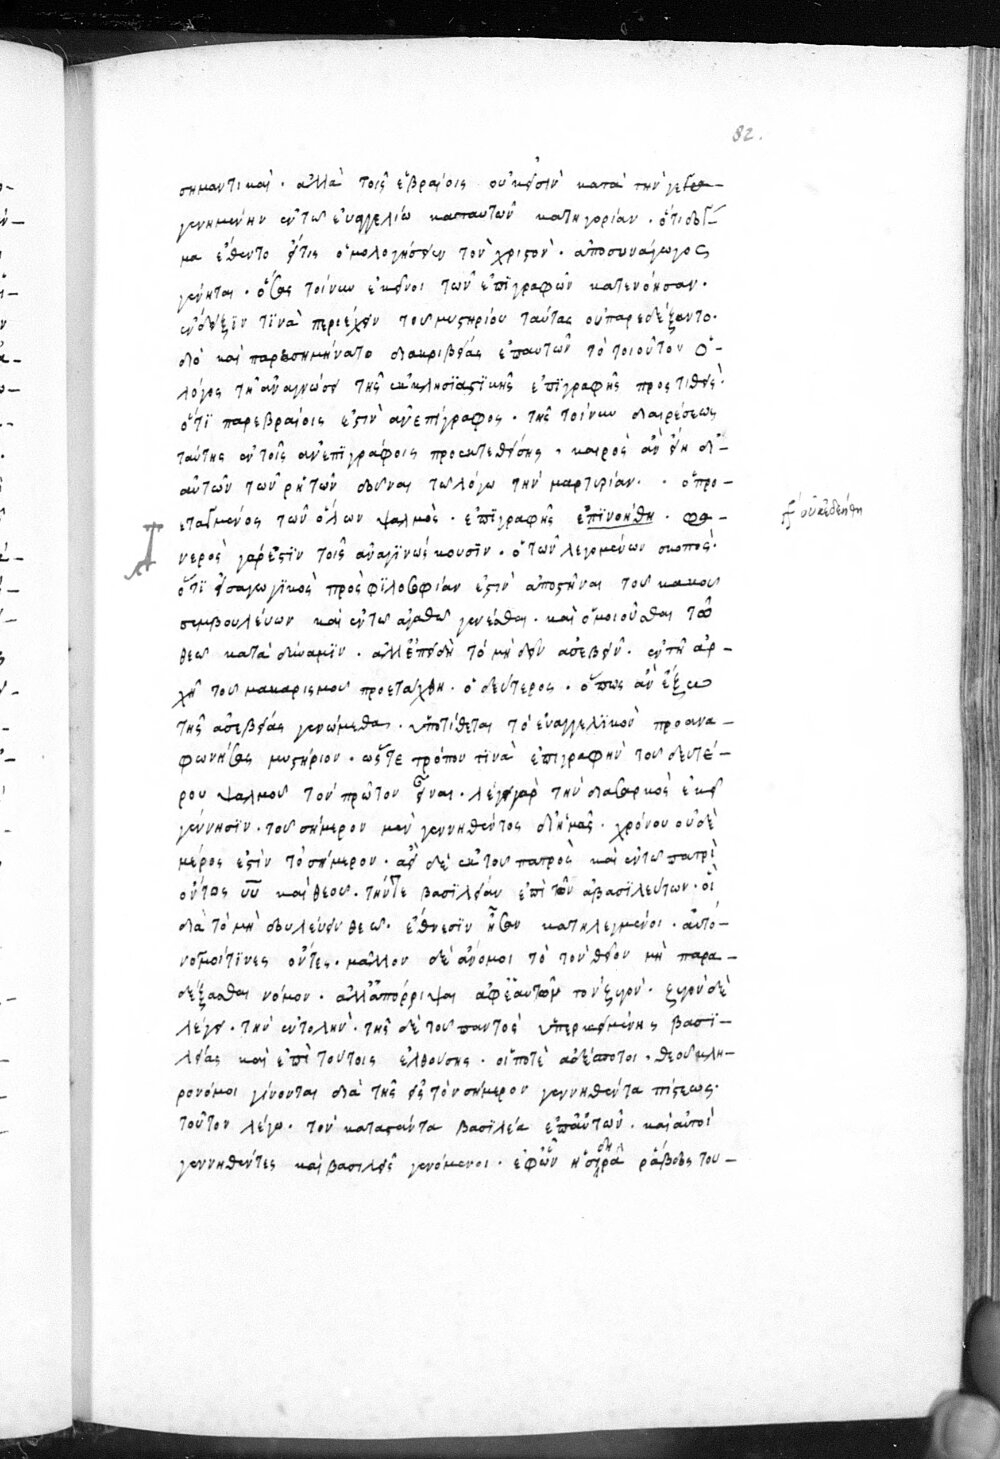 82.
σημαντικαὶ · ἀλλὰ τοῖς ἑβραίοις οὐκ εἰσὶν κατὰ τὴν γεγε-
γενημένην ἐν τῶ εὐαγγελίω κατ αὐτῶν κατηγορίαν · ὅτι δόγ-
μα ἔθεντο εἴ τις ὁμολογήσειεν τὸν χριστὸν · ἀποσυνάγωγος
γένηται · ὅσας τοίνυν ἐκεῖνοι τῶν ἐπιγραφῶν κατενόησαν ·
ἔνδειξίν τινα περιέχειν τοῦ μυστηρίου ταύτας οὐ παρεδέξαντο ·
διὸ καὶ παρεσημήνατο δι ἀκριβείας ἐπ αὐτῶν τὸ τοιοῦτον ὁ
λόγος τῆ ἀναγνώσει τῆς ἐκκλησιαστικῆς ἐπιγραφῆς προστιθεὶς ·
ὅτι παρ ἑβραίοις ἐστὶν ἀνεπίγραφος · τῆς τοίνυν διαιρέσεως
ταύτης ἐν τοῖς ἀνεπιγράφοις προεκτεθείσης · καιρὸς ἂν εἴη δι
αὐτῶν τῶν ῥητῶν δοῦναι τῶ λόγω τὴν μαρτυρίαν · ὁ προ-
εταγμένος τῶν ὅλων ψαλμὸς · ἐπιγραφῆς ἐπινοήθη · φα-
οὐκ ἐδεήθη
νερὸς γάρ ἐστιν τοῖς ἀναγινώσκουσιν · ὁ τῶν λεγομένων σκοπὸς ·
ὅτι εἰσαγωγικὸς πρὸς φιλοσοφίαν ἐστὶν ἀποστῆναι τοῦ κακοῦ
συμβουλεύων καὶ ἐν τῶ ἀγαθῶ γενέσθαι · καὶ ὁμοιοῦσθαι τῶ
θεῶ κατὰ δύναμιν · ἀλλ ἐπειδὴ τὸ μὴ δεῖν ἀσεβεῖν · ἐν τῆ ἀρ-
χῆ τοῦ μακαρισμοῦ προετάχθη · ὁ δεύτερος · ὅπως ἂν ἔξω
τῆς ἀσεβείας γενώμεθα · ὑποτίθεται τὸ εὐαγγελικὸν προανα-
φωνήσας μυστήριον · ὥστε τρόπον τινὰ ἐπιγραφὴν τοῦ δευτέ-
ρου ψαλμοῦ τὸν πρῶτον εἶναι · λέγει γὰρ τὴν διὰ σαρκὸς ἐκεῖ
γέννησιν · τοῦ σήμερον μὲν γεννηθέντος δι ἡμᾶς · χρόνου οὐδὲ
μέρος ἐστὶν τὸ σήμερον · ἀεὶ δὲ ἐκ τοῦ πατρὸς καὶ ἐν τῶ πατρὶ
ὄντος υυ καὶ θεοῦ · τήν τε βασιλείαν ἐπὶ τῶν ἀβασιλεύτων · οἳ
διὰ τὸ μὴ δουλεύειν θεῶ · ἔθνεσιν ἦσαν κατηλεγμένοι · αὐτό-
νομοί τινες ὄντες · μᾶλλον δὲ ἄνομοι τὸ τὸν θεῖον μὴ παρα-
δέξασθαι νόμον · ἀλλ ἀπορρίψαι ἀφ ἑαυτῶν τὸν ζυγὸν · ζυγὸν δὲ
λέγει · τὴν ἐντολὴν · τῆς δὲ τοῦ παντὸς ὑπερκειμένης βασι-
λείας καὶ ἐπὶ τούτοις ἐλθούσης · οἱ ποτὲ ἀδέσποτοι · θεοῦ κλη-
ρονόμοι γίνονται διὰ τῆς εἰς τὸν σήμερον γεννηθέντα πίστεως ·
τοῦτον λέγω · τὸν καταστάντα βασιλέα ἐπ αὐτῶν · καὶ αὐτοὶ
γεννηθέντες καὶ βασιλεῖς γενόμενοι · ἐφ ὧν ἡ σιδηρᾶ ῥάβδος τοῦ-